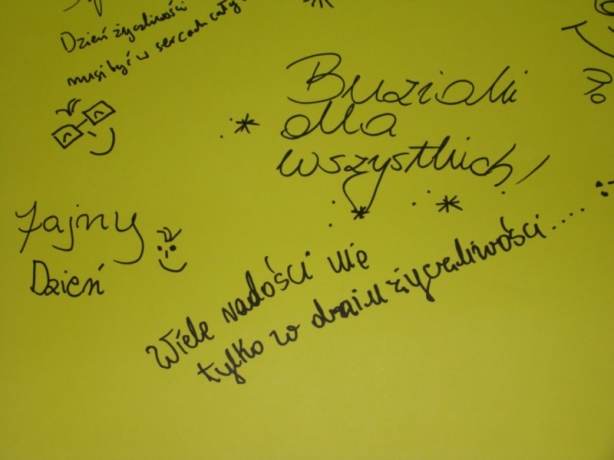 Dzień życzliwości
musi być w sercach cały
Buziaki
dla
wszystkich!
Fajny
Dzień
Wiele radości nie
tylko w dniu życzliwości....